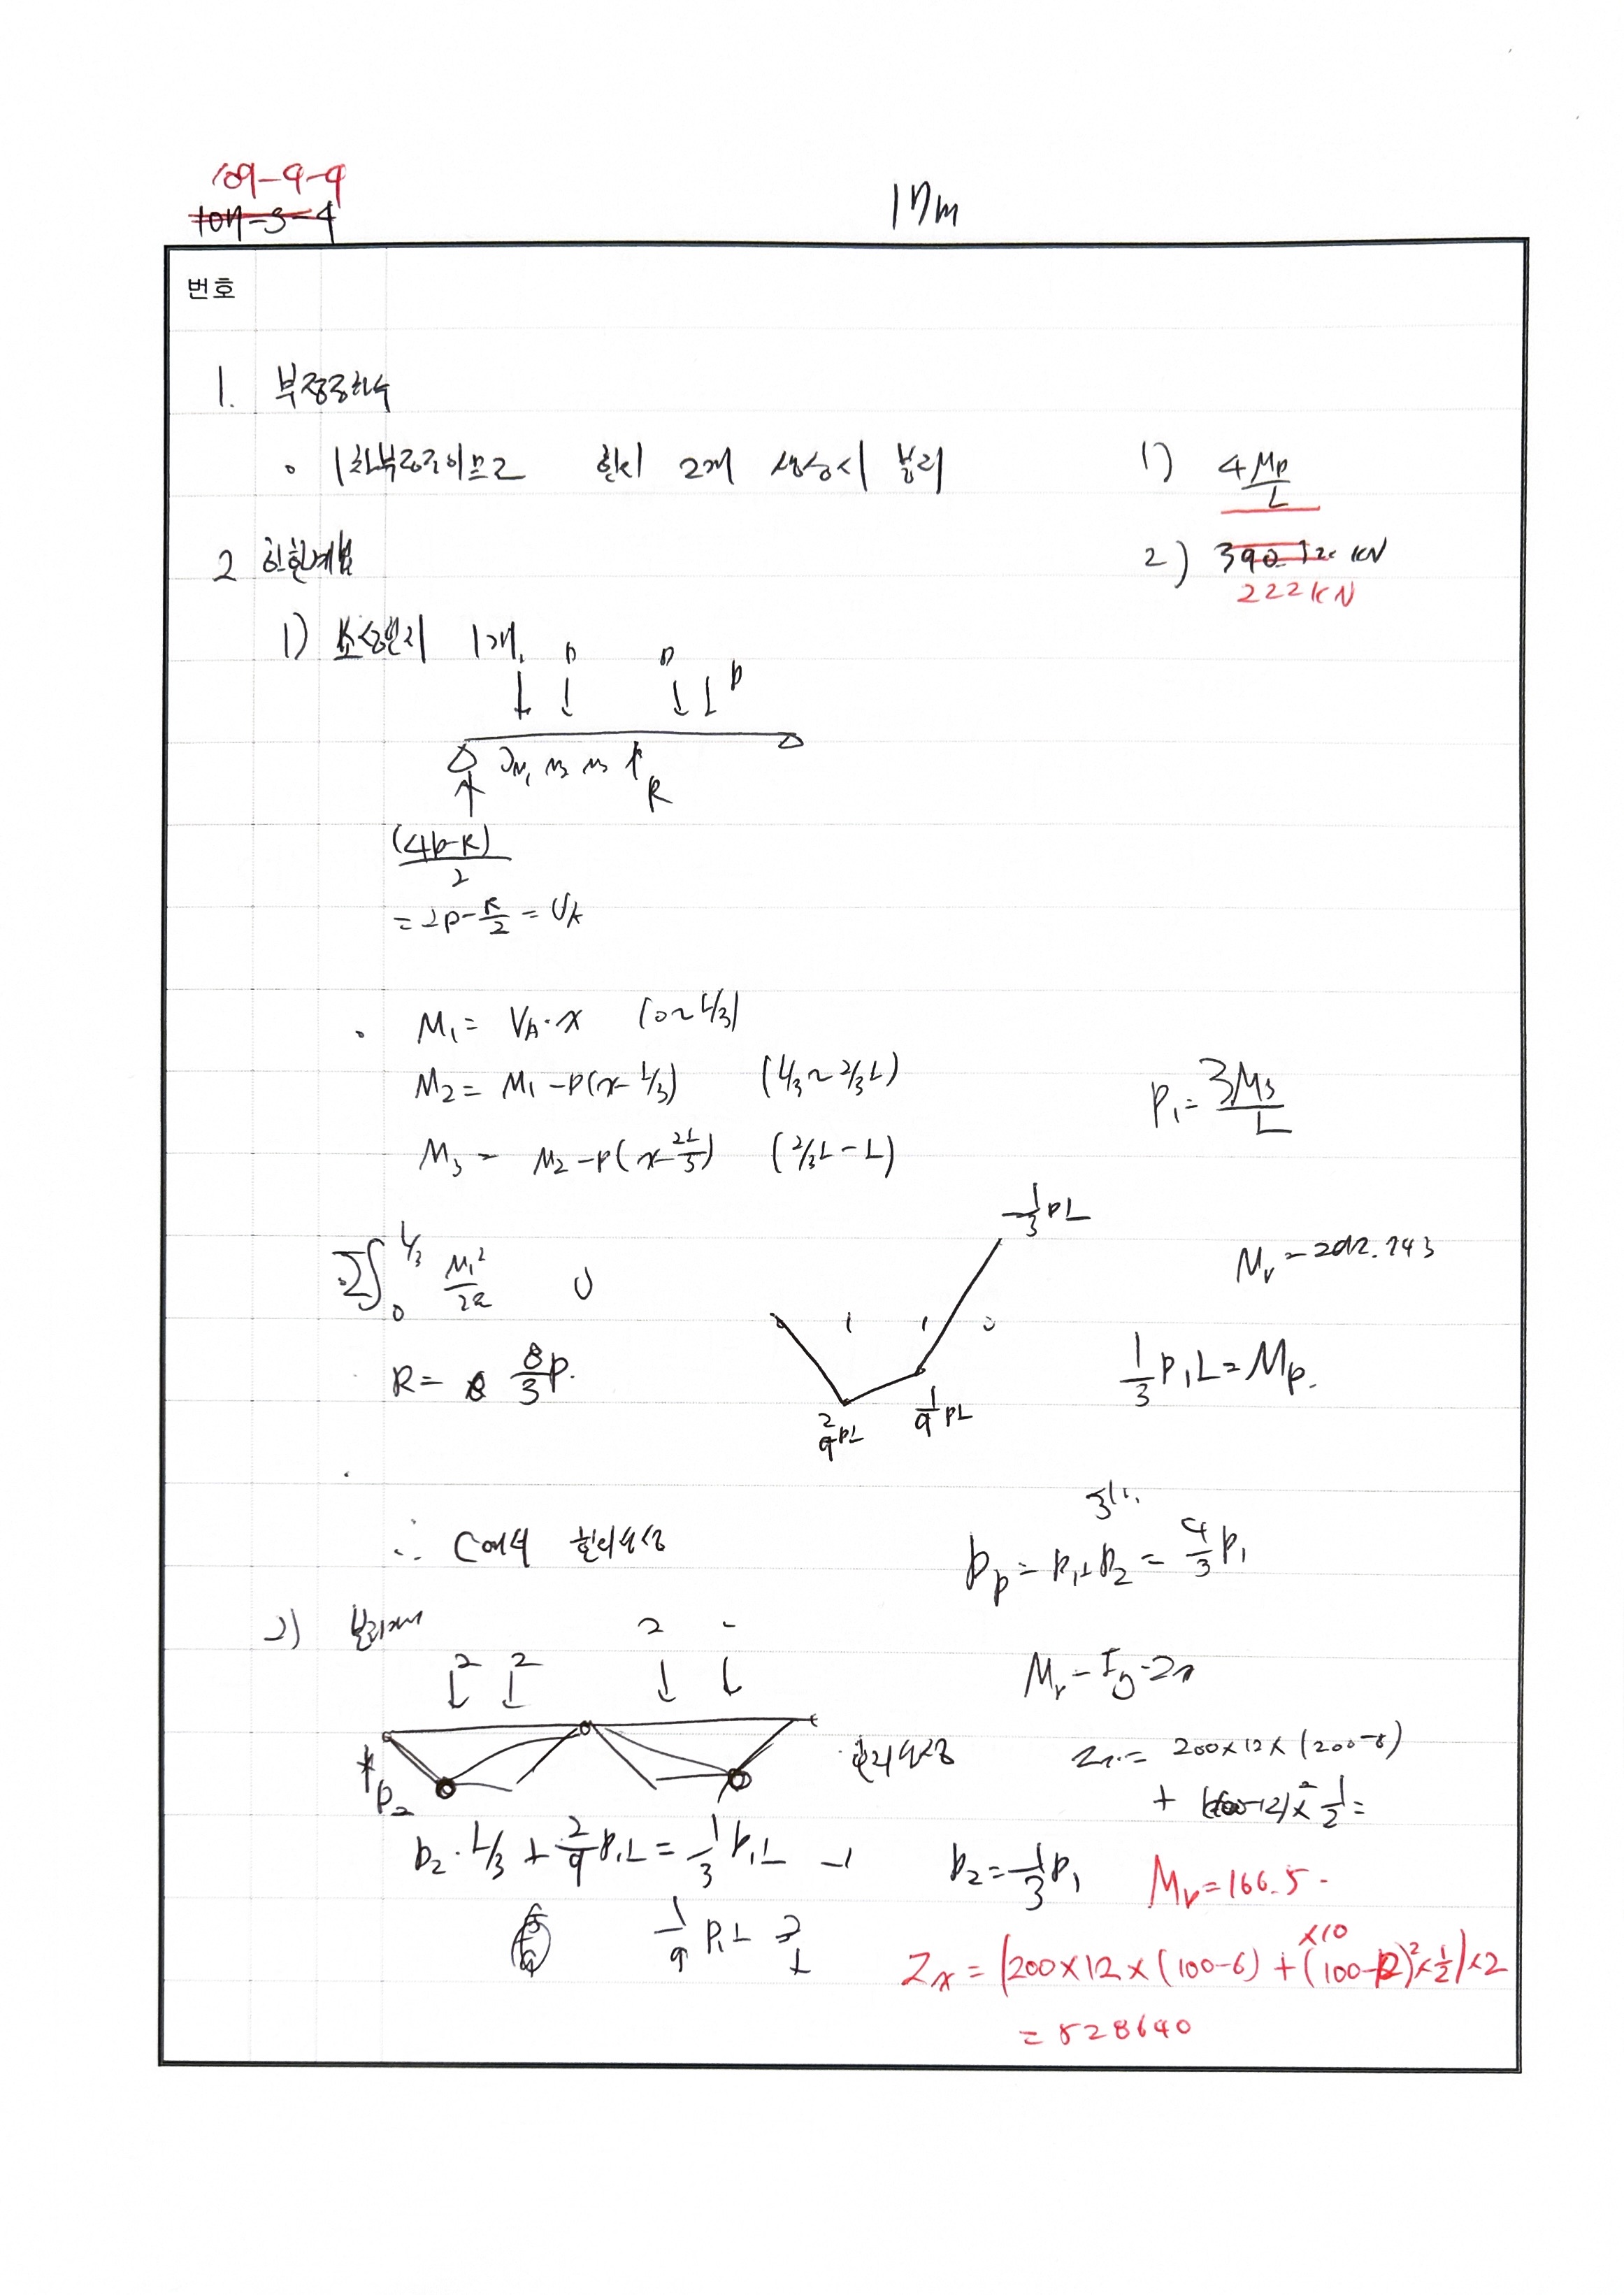 109-4-4
107-3-4
17m
번호
1. 부정정차수
∘ 1차부정정이므로 힌지 2개 생성시 붕괴
1) 4Mp/L
2) 390.12 kN
222KN
2 하한계법
1) 소성힌지 1개
P P P
M1 M2 M3 R
(4P-R)/2
= 2P - R/2 = VA
∘ M1 = VA·x (0~L/3)
M2 = M1 - P(x - L/3) (L/3 ~ 2/3L)
M3 = M2 - P(x - 2L/3) (2/3L - L)
P1 = 3Ms/L
-1/3 PL
Σ∫0 L/3 M1²/2a U
R = 8/3 P.
2/9 PL
1/9 PL
1/3 P1L = Mp.
∴ C에서 힌지생성
Pp = P1 + P2 = 4/3 P1
2) 분리하여
2 2 2
P2
힌지생성
Zx = 200×12×(200-8)
P2·L/3 + 2/9 P1L = 1/3 P1L
P2 = 1/3 P1
Mp = 166.5
1/9 P1L
Zx = (200×12×(100-6) + (100-12)²×1/2)×2
×10
= 528640